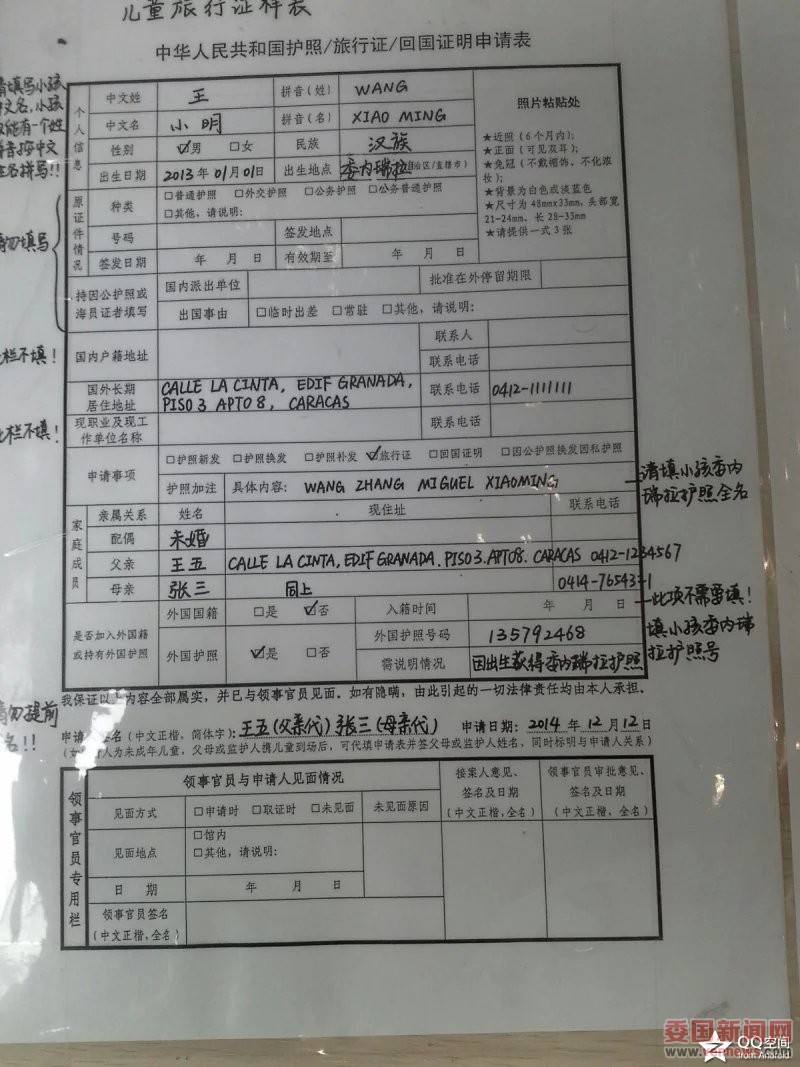 儿童旅行证样表
中华人民共和国护照/旅行证/回国证明申请表
请填写小孩
中文名,小孩
只能有一个姓
拼音按中文
姓名拼写!!
个人信息
中文姓 王 拼音(姓) WANG
中文名 小明 拼音(名) XIAO MING
性别 ☑男 □女 民族 汉族
出生日期 2013年01月01日 出生地点 委内瑞拉 自治区/直辖市)
照片粘贴处
★近照(6个月内);
★正面(可见双耳);
★免冠(不戴帽饰、不化浓
妆);
★背景为白色或淡蓝色
★尺寸为48mm×33mm,头部宽
21-24mm、长28-33mm
★请提供一式3张
请勿填写
原证件情况
种类 □普通护照 □外交护照 □公务护照 □公务普通护照
□其他,请说明:
号码 签发地点
签发日期 年 月 日 有效期至 年 月 日
持因公护照或
海员证者填写
国内派出单位 批准在外停留期限
出国事由 □临时出差 □常驻 □其他,请说明:
此栏不填!
国内户籍地址 联系人
联系电话
国外长期
居住地址
CALLE LA CINTA, EDIF GRANADA,
PISO 3 APTO 8, CARACAS
联系电话 0412-1111111
此栏不填!
现职业及现工
作单位名称
联系电话
申请事项 □护照新发 □护照换发 □护照补发 ☑旅行证 □回国证明 □因公护照换发因私护照
护照加注 具体内容: WANG ZHANG MIGUEL XIAOMING
请填小孩委内
瑞拉护照全名
家庭成员
亲属关系 姓名 现住址 联系电话
配偶 未婚
父亲 王五 CALLE LA CINTA, EDIF GRANADA. PISO 3. APTO 8. CARACAS 0412-1234567
母亲 张三 同上
是否加入外国籍
或持有外国护照
外国国籍 □是 ☑否 入籍时间 年 月 日
此项不需要填!
外国护照 ☑是 □否 外国护照号码 135792468
填小孩委内瑞
拉护照号
需说明情况 因出生获得委内瑞拉护照
我保证以上内容全部属实,并已与领事官员见面。如有隐瞒,由此引起的一切法律责任均由本人承担。
请勿提前
签名!!
签名(中文正楷,简体字): 王五(父亲代) 张三(母亲代) 申请日期: 2014年12月12日
人为未成年儿童,父母或监护人携儿童到场后,可代填申请表并签父母或监护人姓名,同时标明与申请人关系)
领事官员专用栏
领事官员与申请人见面情况
接案人意见、
签名及日期
(中文正楷,全名)
领事官员审批意见、
签名及日期
(中文正楷,全名)
见面方式 □申请时 □取证时 □未见面 未见面原因
见面地点 □馆内
□其他,请说明:
日 期 年 月 日
领事官员签名
(中文正楷,全名)
委国新闻网
QQ空间
from Android